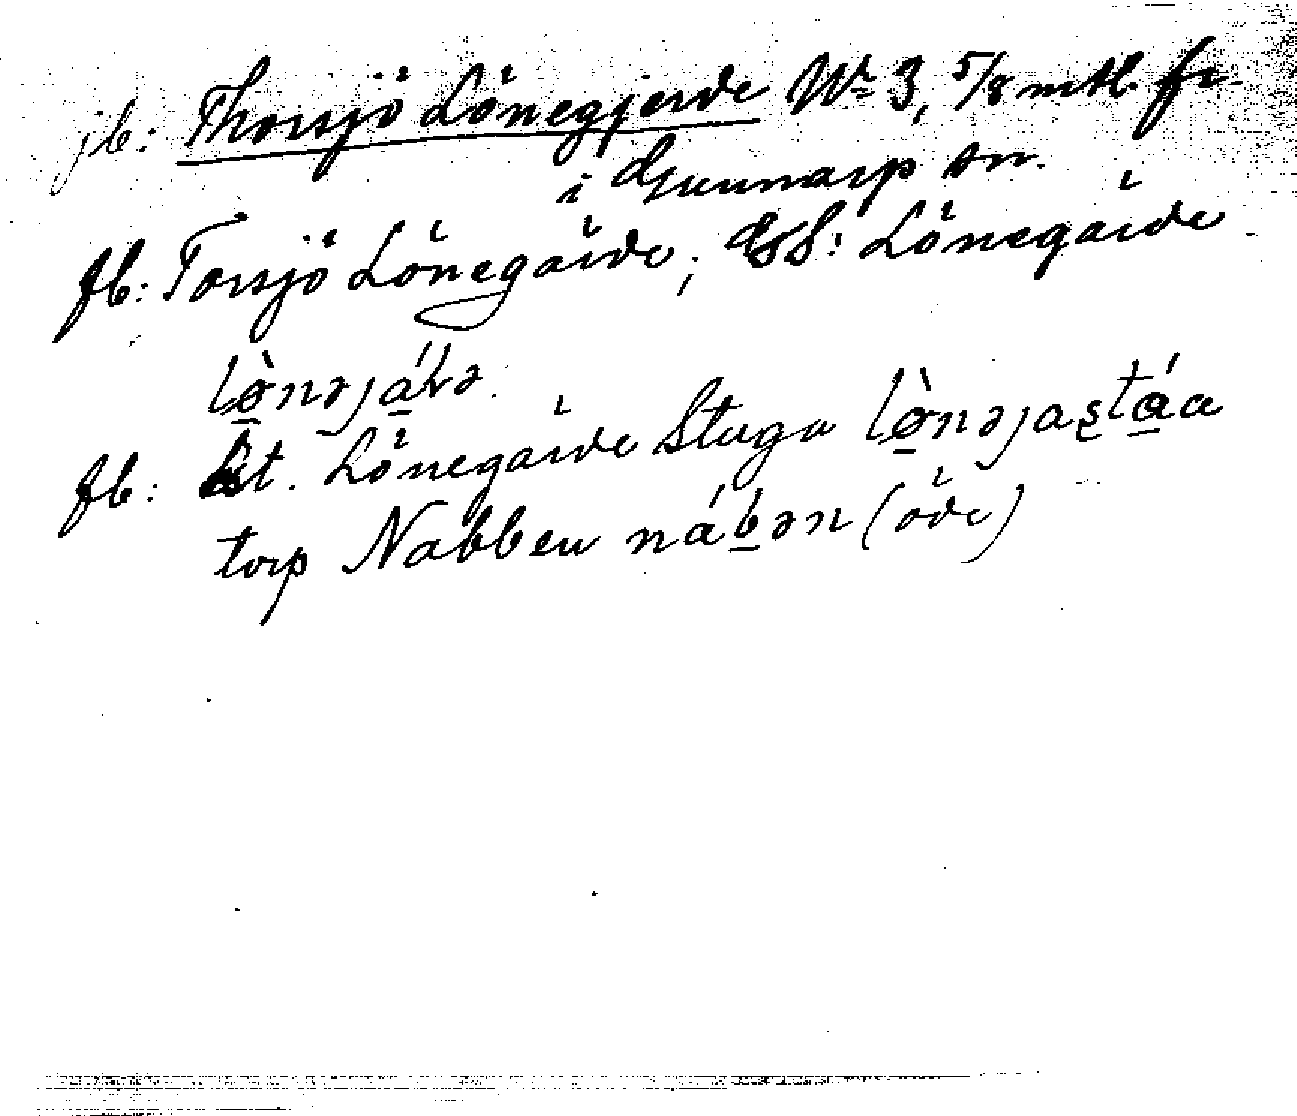 jb: Thorsjö Lönegjerde Nr 3, 5/8 mtl. fr
i Gunnarp sn.
fb: Torsjö Lönegärde; GSS: Lönegärde
lø̀nəjáɽə.
fb: Lst. Lönegärde Stuga lø̀nəjaʂtáa
torp Nabben nábən (öde)